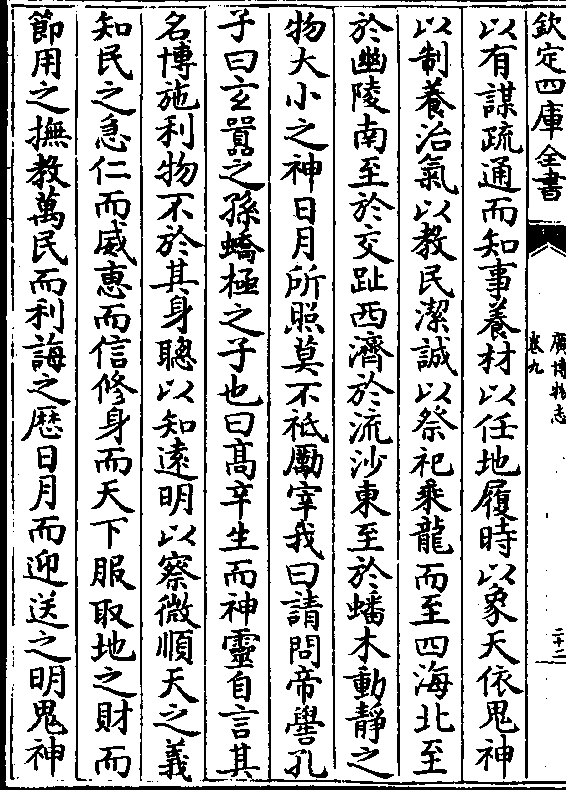 欽定四庫全書
廣博物志
卷九
二十二
以有謀疏通而知事養材以任地履時以象天依鬼神
以制養治氣以教民潔誠以祭祀乘龍而至四海北至
於幽陵南至於交趾西濟於流沙東至於蟠木動靜之
物大小之神日月所照莫不祗勵宰我曰請問帝嚳孔
子曰玄囂之孫蟜極之子也曰髙辛生而神靈自言其
名博施利物不於其身聰以知遠明以察微順天之義
知民之急仁而威惠而信修身而天下服取地之財而
節用之撫教萬民而利誨之歴日月而迎送之明鬼神